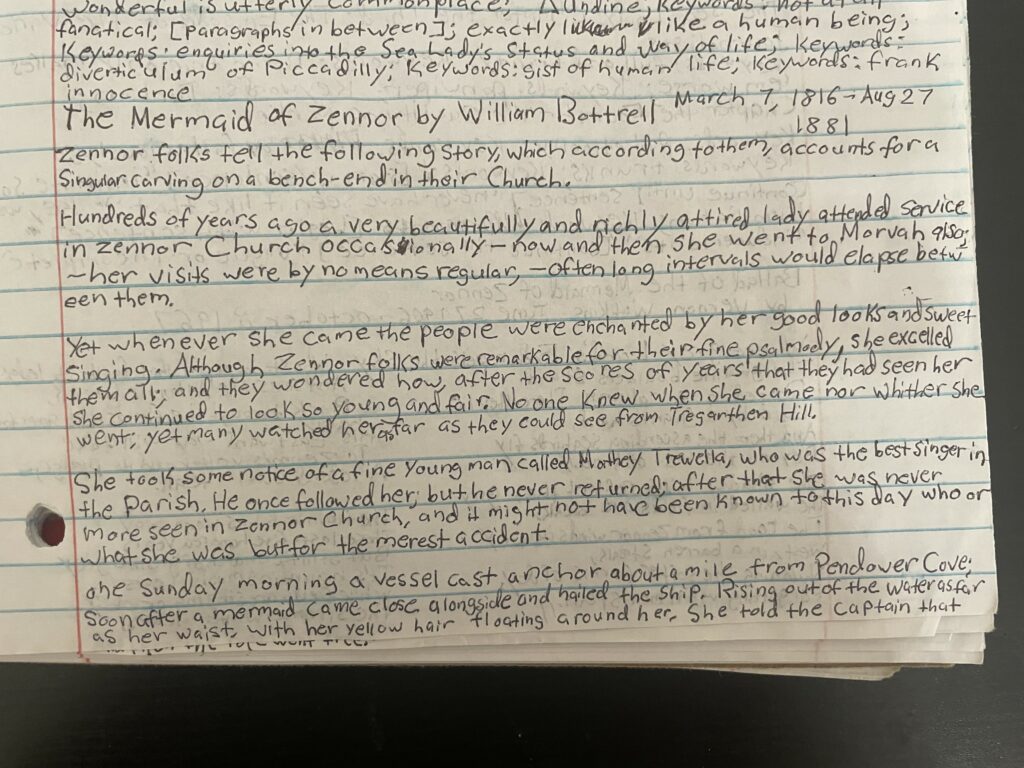 wonderful is utterly commonplace; Aundine; Keywords: not at all
fanatical; [Paragraphs in between]; exactly like a human being;
Keywords: enquiries into the Sea Lady's Status and way of life; Keywords:
diverticulum of Piccadilly; Keywords: gist of human life; Keywords: frank
innocence
The Mermaid of Zennor by William Bottrell March 7, 1816 - Aug 27
1881
Zennor folks tell the following story, which according to them, accounts for a
Singular carving on a bench-end in their Church.
Hundreds of years ago a very beautifully and richly attired lady attended service
in Zennor Church occasionally - now and then she went to Morvah also;
- her visits were by no means regular, - often long intervals would elapse betw
een them.
Yet whenever she came the people were enchanted by her good looks and sweet
Singing. Although Zennor folks were remarkable for their fine psalmody, she excelled
them all; and they wondered how, after the scores of years that they had seen her
she continued to look so young and fair. No one knew when she came nor whither she
went; yet many watched her as far as they could see from Tregarthen Hill.
She took some notice of a fine young man called Mathey Trewella, who was the best singer in
the Parish. He once followed her; but he never returned; after that she was never
more seen in Zennor Church, and it might not have been known to this day who or
what she was but for the merest accident.
One Sunday morning a vessel cast anchor about a mile from Pendower Cove;
Soon after a mermaid came close alongside and hailed the ship. Rising out of the water as far
as her waist, with her yellow hair floating around her. She told the captain that